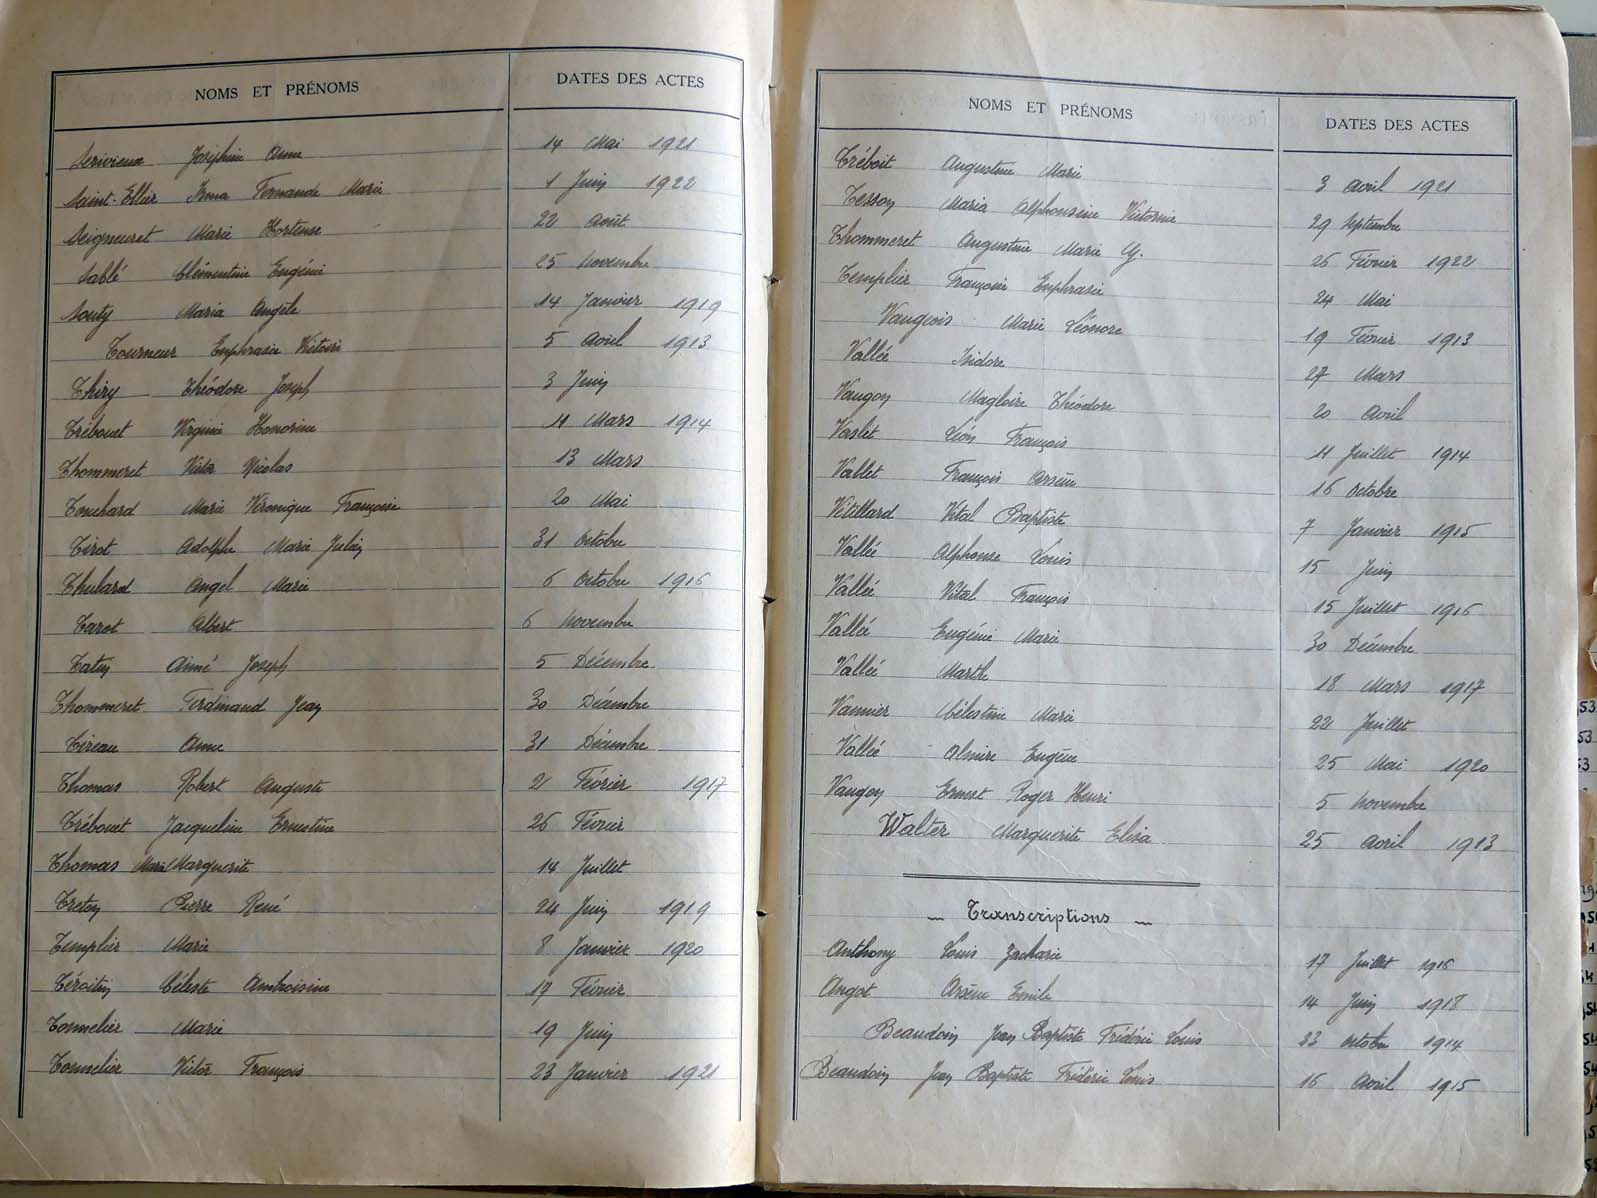 NOMS ET PRÉNOMS DATES DES ACTES
Serivieux Joséphine Anne 14 Mai 1921
Saint-Ellier Irma Fernande Marie 1 Juin 1922
Seigneuret Marie Hortense 22 Août
Sablé Clémentine Eugénie 25 Novembre
Souty Maria Angèle 14 Janvier 1919
Tourneur Euphrasie Victoire 5 Avril 1913
Thiry Théodore Joseph 3 Juin
Trébouet Virginie Honorine 11 Mars 1914
Thommeret Victor Nicolas 13 Mars
Touchard Marie Véronique Françoise 20 Mai
Tirot Adolphe Marie Julien 31 Octobre
Thulard Angel Marie 6 Octobre 1916
Tarot Albert 6 Novembre
Tatin Aimé Joseph 5 Décembre
Thommeret Ferdinand Jean 30 Décembre
Tireau Anne 31 Décembre
Thomas Robert Auguste 21 Février 1917
Trébouet Jacqueline Ernestine 26 Février
Thomas Marie Marguerite 14 Juillet
Treton Pierre René 24 Juin 1919
Templier Marie 8 Janvier 1920
Céleste Ambroisine 17 Février
Tonnelier Marie 19 Juin
Tonnelier Victor François 23 Janvier 1921
NOMS ET PRÉNOMS DATES DES ACTES
Tréboit Augustine Marie 3 Avril 1921
Tesson Maria Alphonsine Victorine 29 Septembre
Thommeret Augustine Marie G. 26 Février 1922
Templier Françoise Euphrasie 24 Mai
Vaugeois Marie Léonore 19 Février 1913
Vallée Isidore 27 Mars
Vaugon Magloire Théodore 20 Avril
Vaslet Léon François 11 Juillet 1914
Vallet François Arsène 16 Octobre
Vétillard Vital Baptiste 7 Janvier 1915
Vallée Alphonse Louis 15 Juin
Vallée Vital François 15 Juillet 1916
Vallée Eugénie Marie 30 Décembre
Vallée Marthe 18 Mars 1917
Vannier Célestine Marie 22 Juillet
Vallée Almire Eugène 25 Mai 1920
Vaugon Ernest Roger Henri 5 Novembre
Walter Marguerite Elisa 25 Avril 1913
Transcriptions
Anthony Louis Zacharie 17 Juillet 1916
Angot Arsène Emile 14 Juin 1918
Beaudoin Jean Baptiste Frédéric Louis 23 Octobre 1914
Beaudoin Jean Baptiste Frédéric Louis 16 Avril 1915